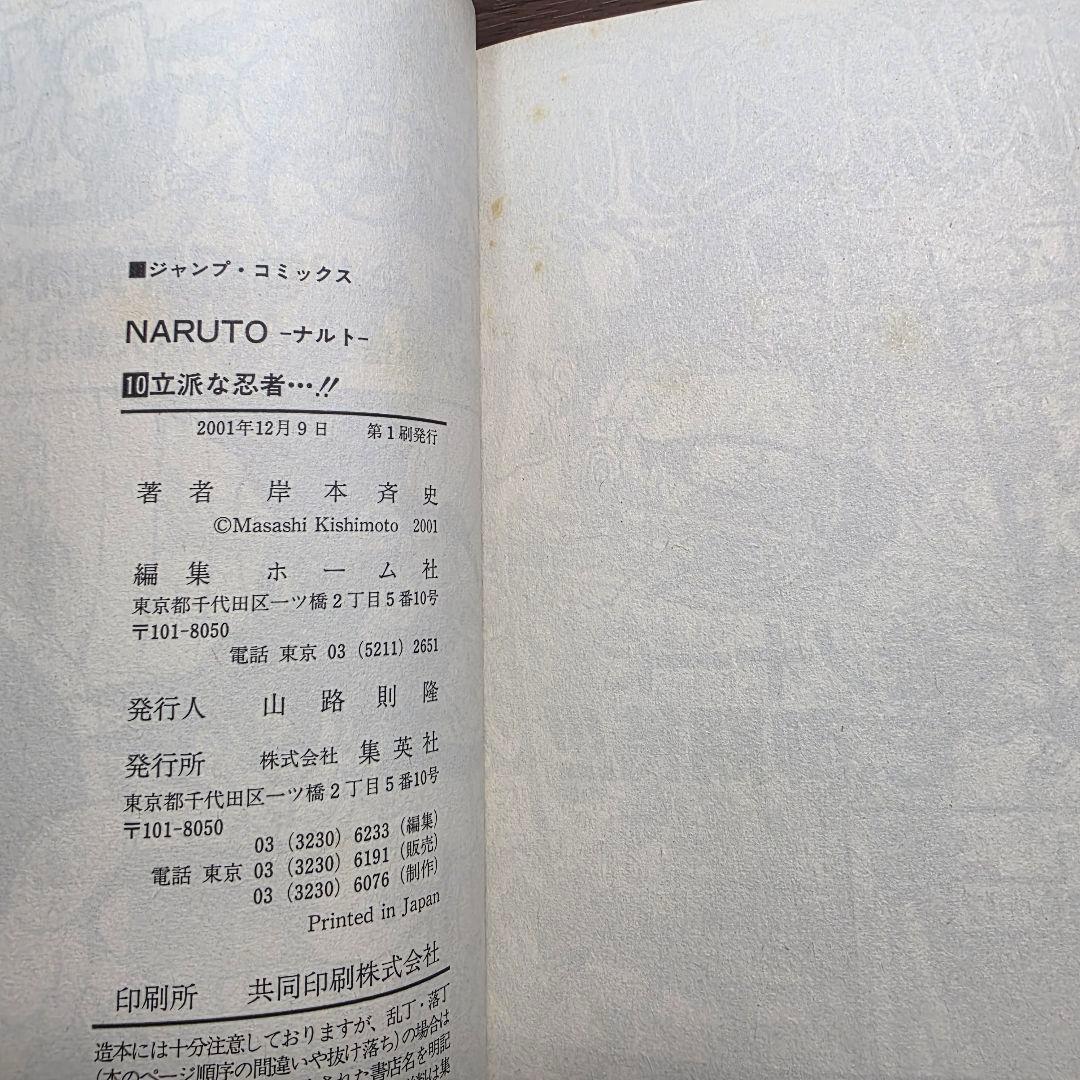 ■ジャンプ・コミックス
NARUTO −ナルト−
10立派な忍者…!!
2001年12月9日 第1刷発行
著者 岸本斉史
©Masashi Kishimoto 2001
編集 ホーム社
東京都千代田区一ツ橋2丁目5番10号
〒101-8050
電話 東京 03 (5211) 2651
発行人 山路則隆
発行所 株式会社 集英社
東京都千代田区一ツ橋2丁目5番10号
〒101-8050
03 (3230) 6233 (編集)
電話 東京 03 (3230) 6191 (販売)
03 (3230) 6076 (制作)
Printed in Japan
印刷所 共同印刷株式会社
造本には十分注意しておりますが、乱丁・落丁
(本のページ順序の間違いや抜け落ち)の場合は
された書店名を明記
は集